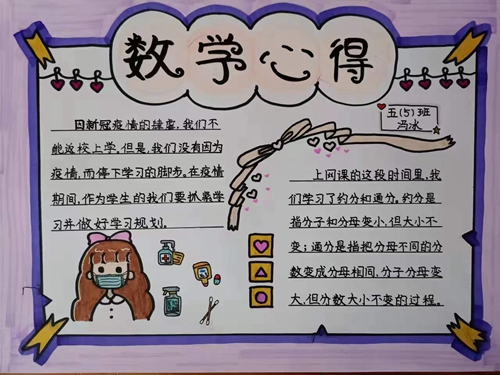 数学心得
五(5)班
冯冰
因新冠疫情的肆虐,我们不
能返校上学,但是,我们没有因为
疫情,而停下学习的脚步,在疫情
期间,作为学生的我们要抓紧学
习并做好学习规划.
上网课的这段时间里,我
们学习了约分和通分,约分是
指分子和分母变小,但大小不
变;通分是指把分母不同的分
数变成分母相同,分子分母变
大,但分数大小不变的过程.